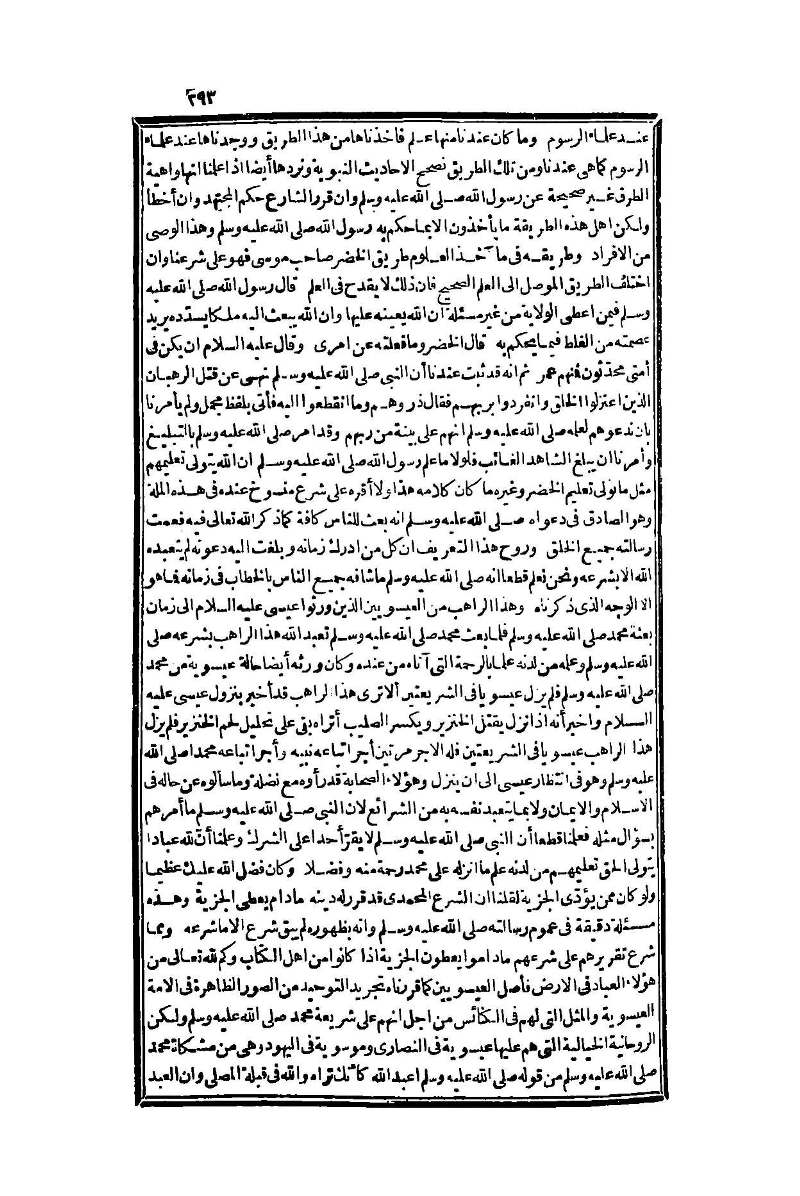 ٢٩٣
عند علماء الرسوم وما كان عندنا منها علم فاخذناها من هذا الطريق ووجدناها عند علماء
الرسوم كما هى عندنا ومن تلك الطريق نصحح الاحاديث النبوية ونردها أيضا اذا علمنا انها واهية
الطرق غير صحيحة عن رسول الله صلى الله عليه وسلم وان قرر الشارع حكم المجتهد وان أخطأ
ولكن اهل هذه الطريقة ما يأخذون الا بما حكم به رسول الله صلى الله عليه وسلم وهذا الوصى
من الافراد وطريقه فى مآخذ العلوم طريق الخضر صاحب موسى فهو على شرعنا وان
اختلف الطريق الموصل الى العلم الصحيح فان ذلك لا يقدح فى العلم قال رسول الله صلى الله عليه
وسلم فيمن اعطى الولاية من غير مسئلة ان الله يعينه عليها وان الله يبعث اليه ملكا يسدده يريد
عصمته من الغلط فيما يحكم به قال الخضر وما فعلته عن امرى وقال عليه السلام ان يكن فى
أمتى محدثون فمنهم عمر ثم انه قد ثبت عندنا أن النبى صلى الله عليه وسلم نهى عن قتل الرهبان
الذين اعتزلوا الخلق وانفردوا بربهم فقال ذروهم وما انقطعوا اليه فأتى بلفظ مجمل ولم يأمرنا
بان ندعوهم لعلمه صلى الله عليه وسلم انهم على بينة من ربهم وقد امر صلى الله عليه وسلم بالتبليغ
وأمرنا ان يبلغ الشاهد الغائب فلولا ما علم رسول الله صلى الله عليه وسلم ان الله يتولى تعليمهم
مثل ما تولى تعليم الخضر وغيره ما كان كلامه هذا ولا أقره على شرع منسوخ عنده فى هذه الملة
وهو الصادق فى دعواه صلى الله عليه وسلم انه بعث للناس كافة كما ذكر الله تعالى فيه فعمت
رسالته جميع الخلق وروح هذا التعريف ان كل من ادرك زمانه وبلغت اليه دعوته لم يتعبده
الله الا بشرعه ونحن نعلم قطعا انه صلى الله عليه وسلم ما شافه جميع الناس بالخطاب فى زمانه فما هو
الا الوجه الذى ذكرناه وهذا الراهب من العيسويين الذين ورثوا عيسى عليه السلام الى زمان
بعثة محمد صلى الله عليه وسلم فلما بعث محمد صلى الله عليه وسلم تعبد الله هذا الراهب بشرعه صلى
الله عليه وسلم وعلمه من لدنه علما بالرحمة التى آتاه من عنده وكان ورثه أيضا حالة عيسوية من محمد
صلى الله عليه وسلم فلم يزل عيسويا فى الشريعتين ألا ترى هذا الراهب قد أخبر بنزول عيسى عليه
السلام واخبر أنه اذا نزل يقتل الخنزير ويكسر الصليب أتراه بقى على تحليل لحم الخنزير فلم يزل
هذا الراهب عيسويا فى الشريعتين فله الاجر مرتين أجر اتباعه نبيه وأجر اتباعه محمدا صلى الله
عليه وسلم وهو فى انتظار عيسى الى ان ينزل وهؤلاء الصحابة قد رأوه مع نضلة وما سألوه عن حاله فى
الاسلام والايمان ولا بما يتعبد نفسه به من الشرائع لان النبى صلى الله عليه وسلم ما أمرهم
بسؤال مثله فعلمنا قطعا أن النبى صلى الله عليه وسلم لا يقر أحدا على الشرك وعلمنا أن لله عبادا
يتولى الحق تعليمهم من لدنه علم ما انزله على محمد رحمة منه وفضلا وكان فضل الله عليك عظيما
ولو كان ممن يؤدى الجزية لقلنا ان الشرع المحمدى قد قرر له دينه ما دام يعطى الجزية وهذه
مسئلة دقيقة فى عموم رسالته صلى الله عليه وسلم وانه بظهوره لم يبق شرع الا ما شرعه ومما
شرع تقريرهم على شرعهم ما داموا يعطون الجزية اذا كانوا من اهل الكتاب وكم لله تعالى من
هؤلاء العباد فى الارض فأصل العيسويين كما قررناه تجريد التوحيد من الصور الظاهرة فى الامة
العيسوية والمثل التى لهم فى الكنائس من اجل انهم على شريعة محمد صلى الله عليه وسلم ولكن
الروحانية الخيالية التى هم عليها عيسوية فى النصارى وموسوية فى اليهود وهى من مشكاة محمد
صلى الله عليه وسلم من قوله صلى الله عليه وسلم اعبد الله كأنك تراه والله فى قبلة المصلى وان العبد